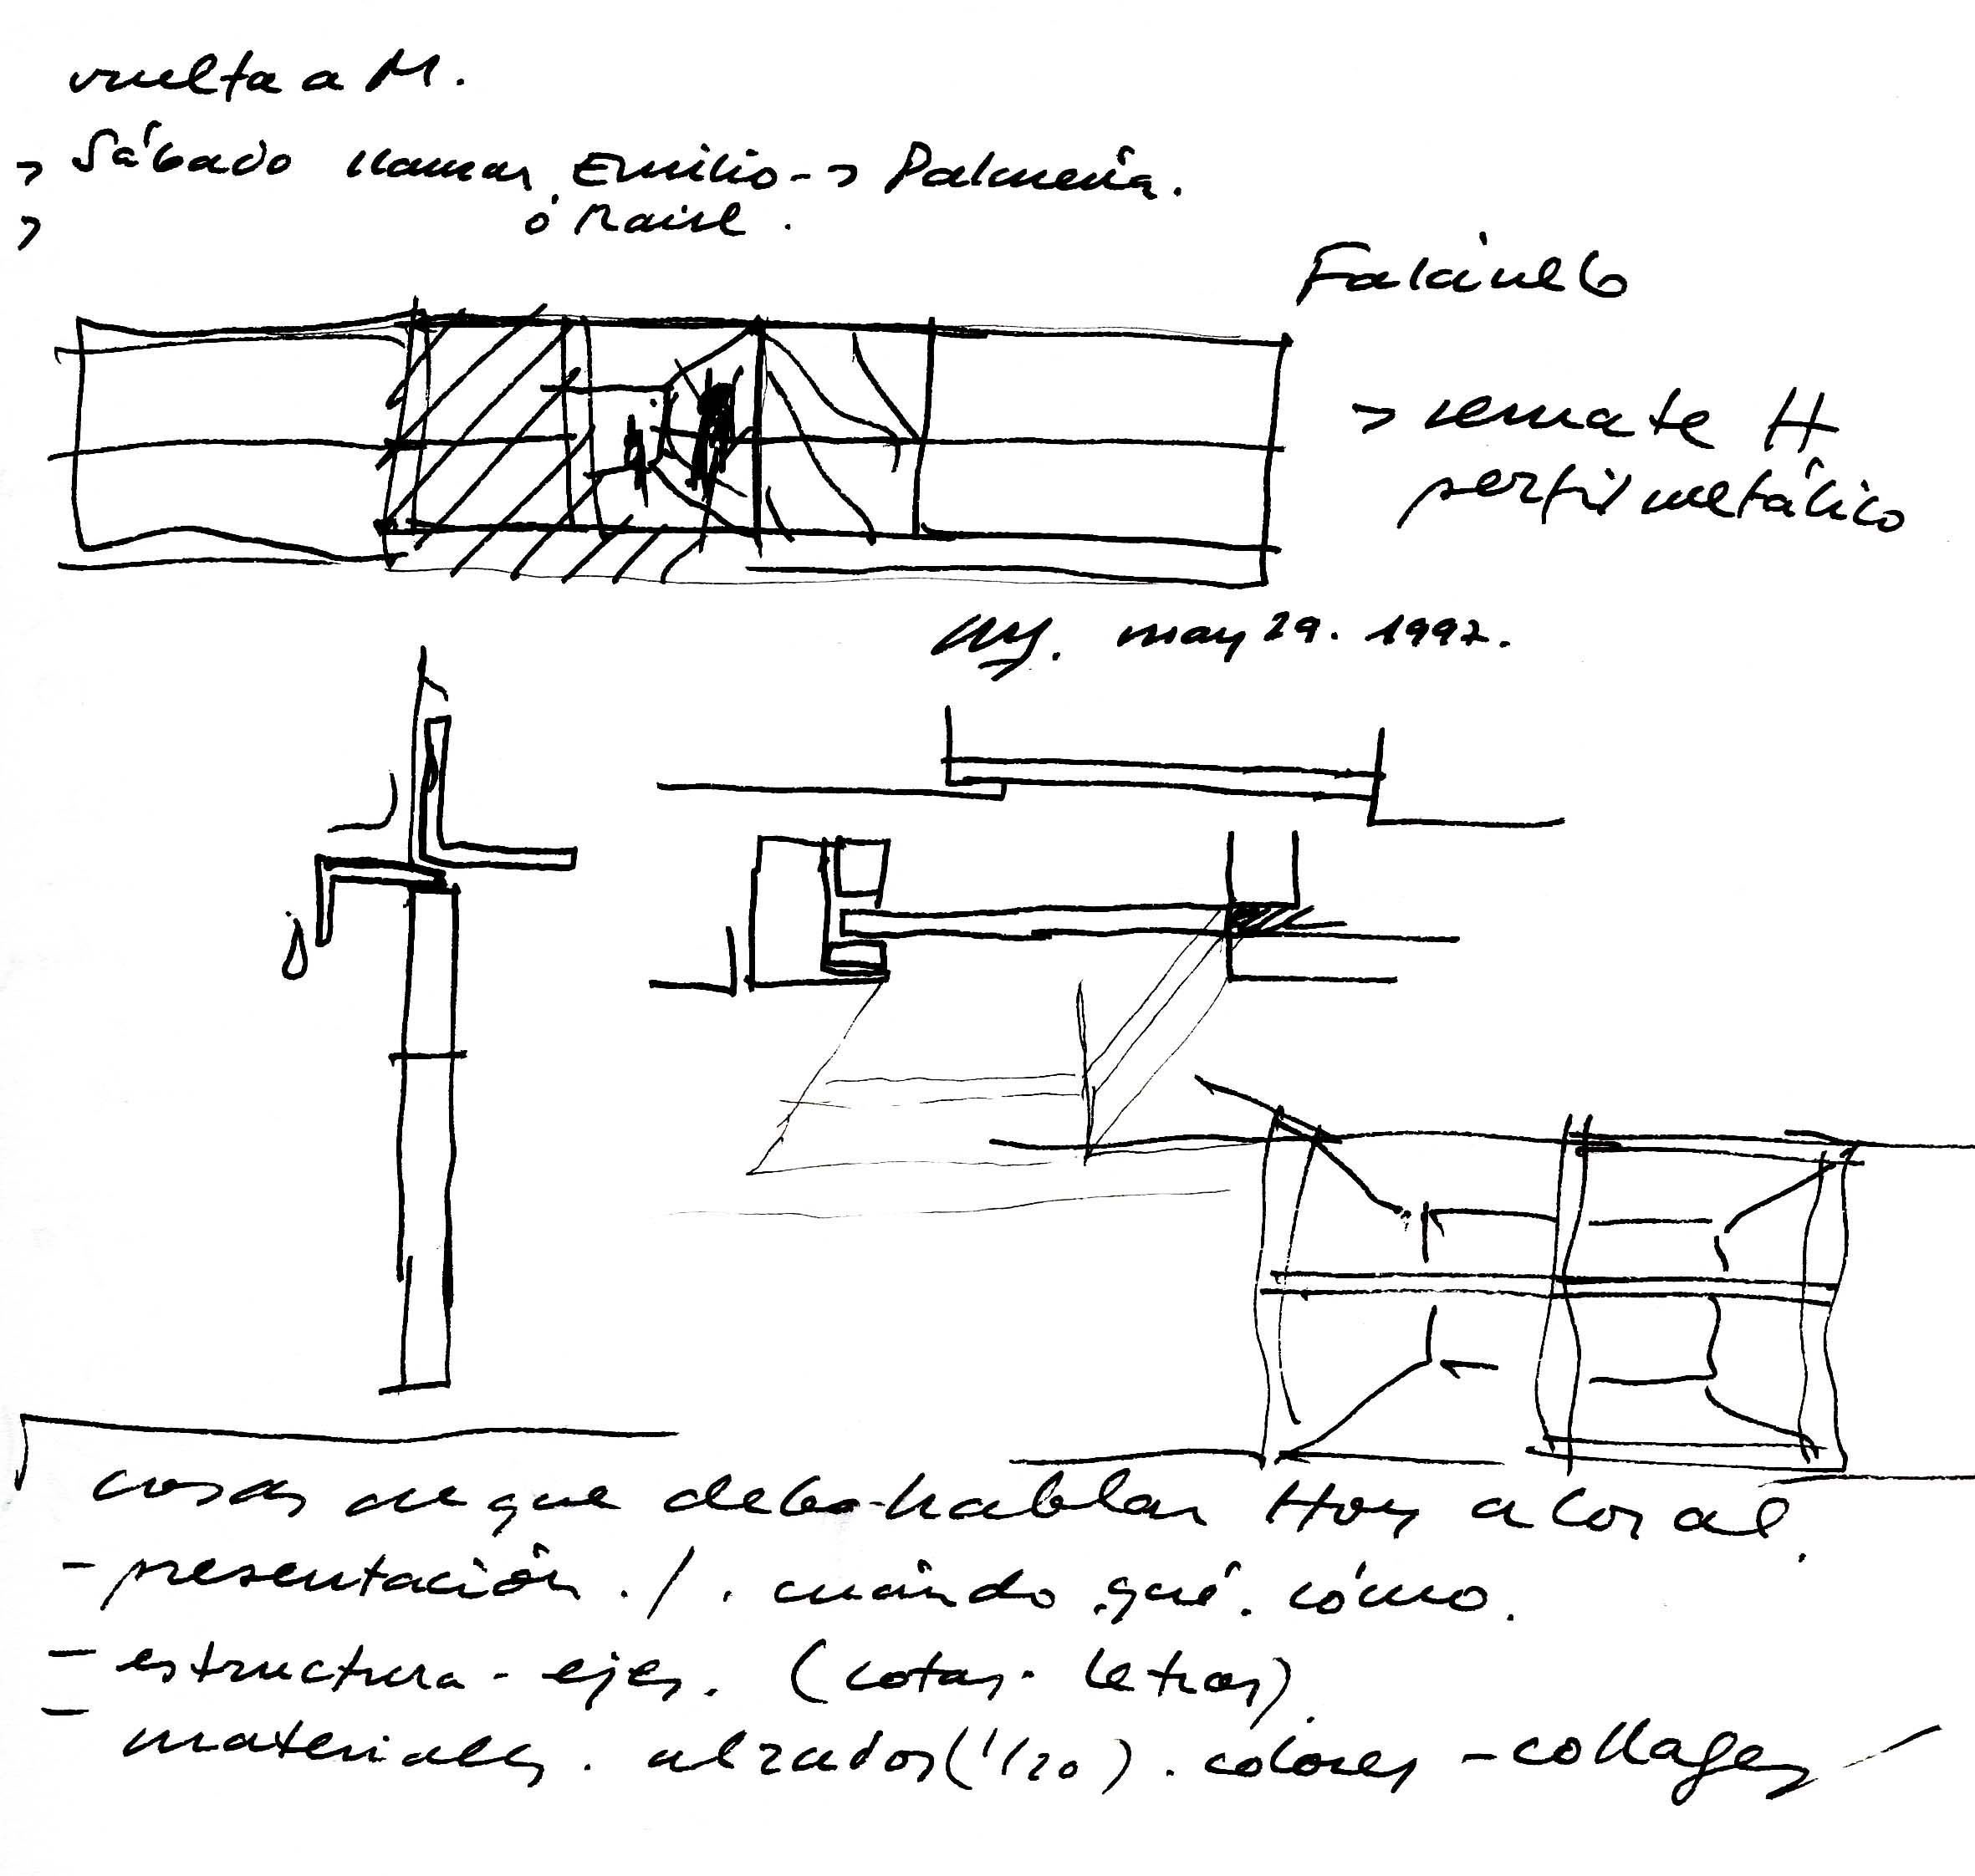 vuelta a M.
→ Sábado llamar Emilio → Palmeria.
ó
Falcinelo
→ remate H
perfil metálico
may 29. 1997.
cosas de que debo hablar Hoy a Coral.
- presentación. / . cuándo . qué . cómo.
- estructura - ejes. (cotas. letras)
- materiales. alzados (1/20). colores - collages